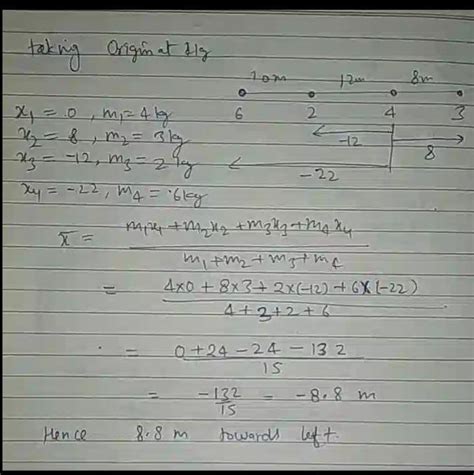 taking Origin at 4kg
10m 12m 8m
6 2 4 3
x₁ = 0, m₁ = 4 kg
x₂ = 8, m₂ = 3 kg
-12
8
x₃ = -12, m₃ = 2 kg
-22
x₄ = -22, m₄ = 6kg
x̄ = m₁x₁ + m₂x₂ + m₃x₃ + m₄x₄
m₁ + m₂ + m₃ + m₄
= 4x0 + 8x3 + 2x(-12) + 6x(-22)
4 + 3 + 2 + 6
= 0 + 24 - 24 - 132
15
= -132 = -8.8 m
15
Hence 8.8 m towards left.